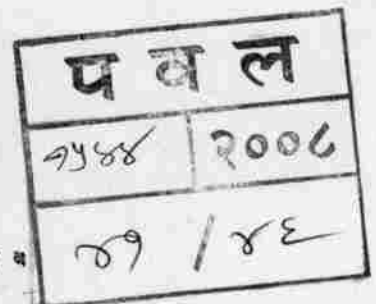 प व ल
१५४४ २००८
४१ / ४६